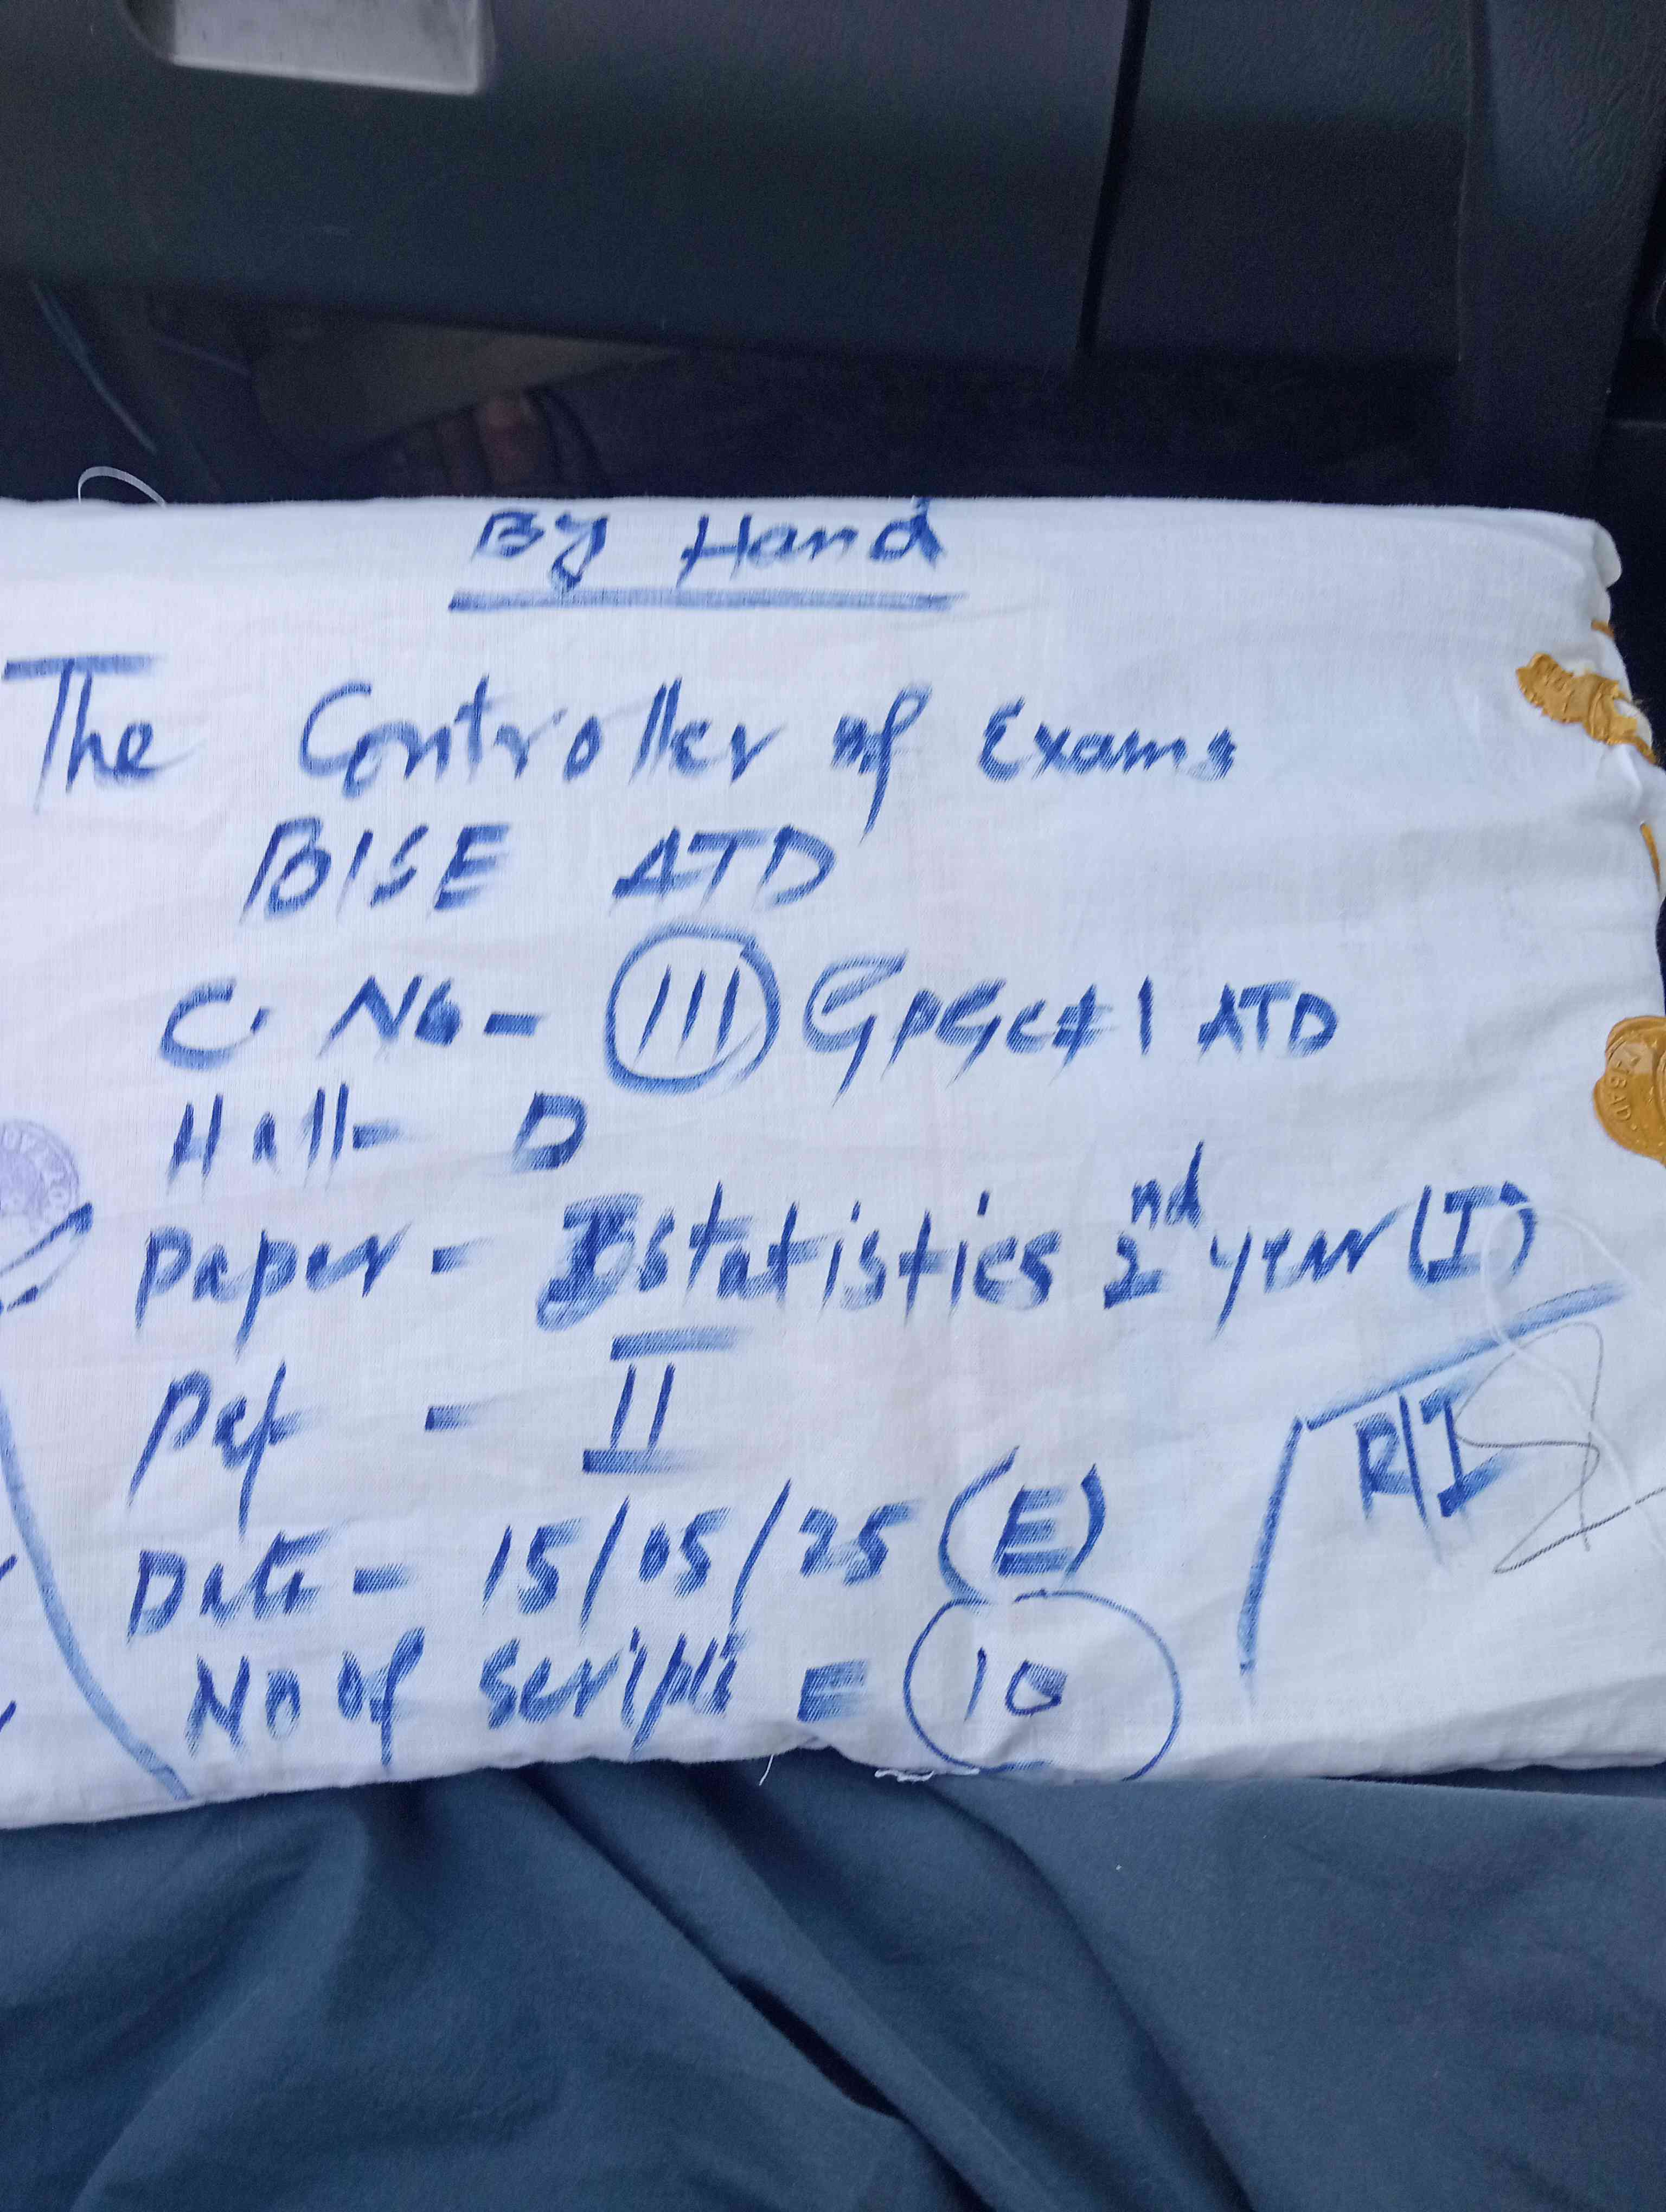 By Hand
The Controller of Exams
BISE ATD
C. No - III GPGC # 1 ATD
Hall - D
Paper - Statistics 2nd year (I)
- II
Date - 15/05/25 (E)
No of Scripts = 10
R/I
BAD